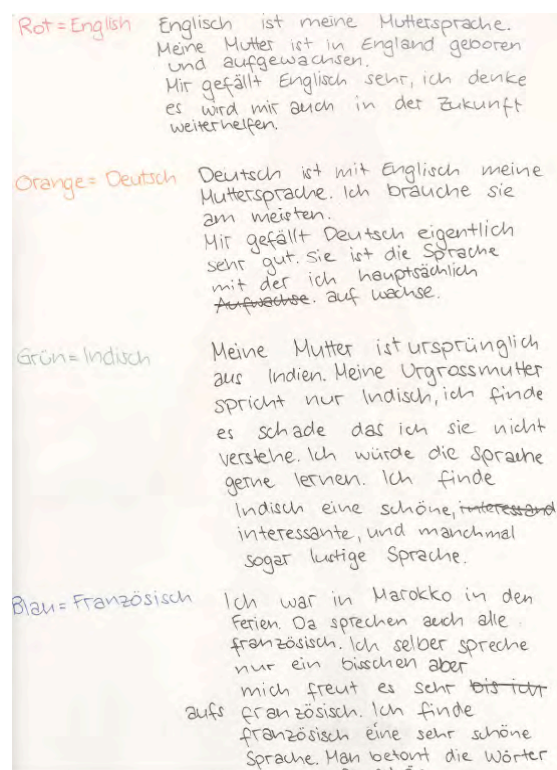 Rot = English Englisch ist meine Muttersprache.
Meine Mutter ist in England geboren
und aufgewachsen.
Mir gefällt Englisch sehr, ich denke
es wird mir auch in der Zukunft
weiterhelfen.
Orange = Deutsch Deutsch ist mit Englisch meine
Muttersprache. Ich brauche sie
am meisten.
Mir gefällt Deutsch eigentlich
sehr gut. Sie ist die Sprache
mit der ich hauptsächlich
Aufwachse. auf wachse.
Grün = Indisch Meine Mutter ist ursprünglich
aus Indien. Meine Urgrossmutter
spricht nur Indisch, ich finde
es schade das ich sie nicht
verstehe. Ich würde die Sprache
gerne lernen. Ich finde
Indisch eine schöne, interessand
interessante, und manchmal
sogar lustige Sprache.
Blau = Französisch Ich war in Marokko in den
Ferien. Da sprechen auch alle
französisch. Ich selber spreche
nur ein bisschen aber
mich freut es sehr bis ich
aufs französisch. Ich finde
französisch eine sehr schöne
Sprache. Man betont die Wörter